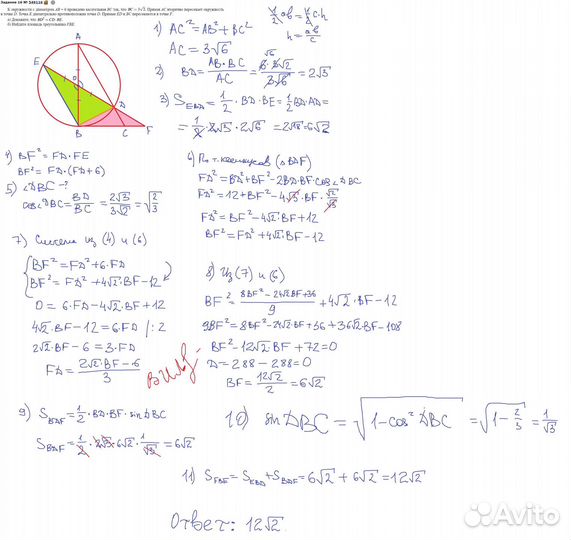 Задание 16 № 548116
К окружности с диаметром AB = 6 проведена касательная BC так, что BC = 3√2. Прямая AC вторично пересекает окружность
в точке D. Точка E диаметрально противоположна точке D. Прямые ED и BC пересекаются в точке F.
а) Докажите, что BD² = CD · BE.
б) Найдите площадь треугольника FBE.
E
A
O
D
B
C
F
1) AC² = AB² + BC²
AC = 3√6
½ab = ½c·h
h = ab/c
2) BD = AB·BC/AC = 6·3√2/3√6 = 2√3
√6
3) S_EBD = 1/2 · BD · BE = 1/2 BD·AD =
= 1/2 · 2√3 · 2√6 = 2√18 = 6√2
4) BF² = FD·FE
BF² = FD·(FD+6)
5) ∠DBC - ?
cos∠DBC = BD/BC = 2√3/3√2 = √2/√3
6) По т. косинусов (△BDF)
FD² = BD² + BF² - 2BD·BF·cos∠DBC
FD² = 12 + BF² - 4√3·BF·√2/√3
FD² = BF² - 4√2·BF + 12
BF² = FD² + 4√2·BF - 12
7) Система из (4) и (6)
BF² = FD² + 6·FD
BF² = FD² + 4√2·BF - 12
0 = 6·FD - 4√2·BF + 12
4√2·BF - 12 = 6·FD /:2
2√2·BF - 6 = 3·FD
FD = 2√2·BF - 6/3
8) Из (7) и (6)
BF² = 8BF² - 24√2BF + 36/9 + 4√2·BF - 12
9BF² = 8BF² - 24√2·BF + 36 + 36√2·BF - 108
BF² - 12√2·BF + 72 = 0
D = 288 - 288 = 0
BF = 12√2/2 = 6√2
9) S_BDF = 1/2 · BD · BF · sin∠DBC
S_BDF = 1/2 · 2√3 · 6√2 · 1/√3 = 6√2
10) sin∠DBC = √1 - cos²∠DBC = √1 - 2/3 = 1/√3
11) S_FBE = S_EBD + S_BDF = 6√2 + 6√2 = 12√2
Ответ: 12√2
Avito